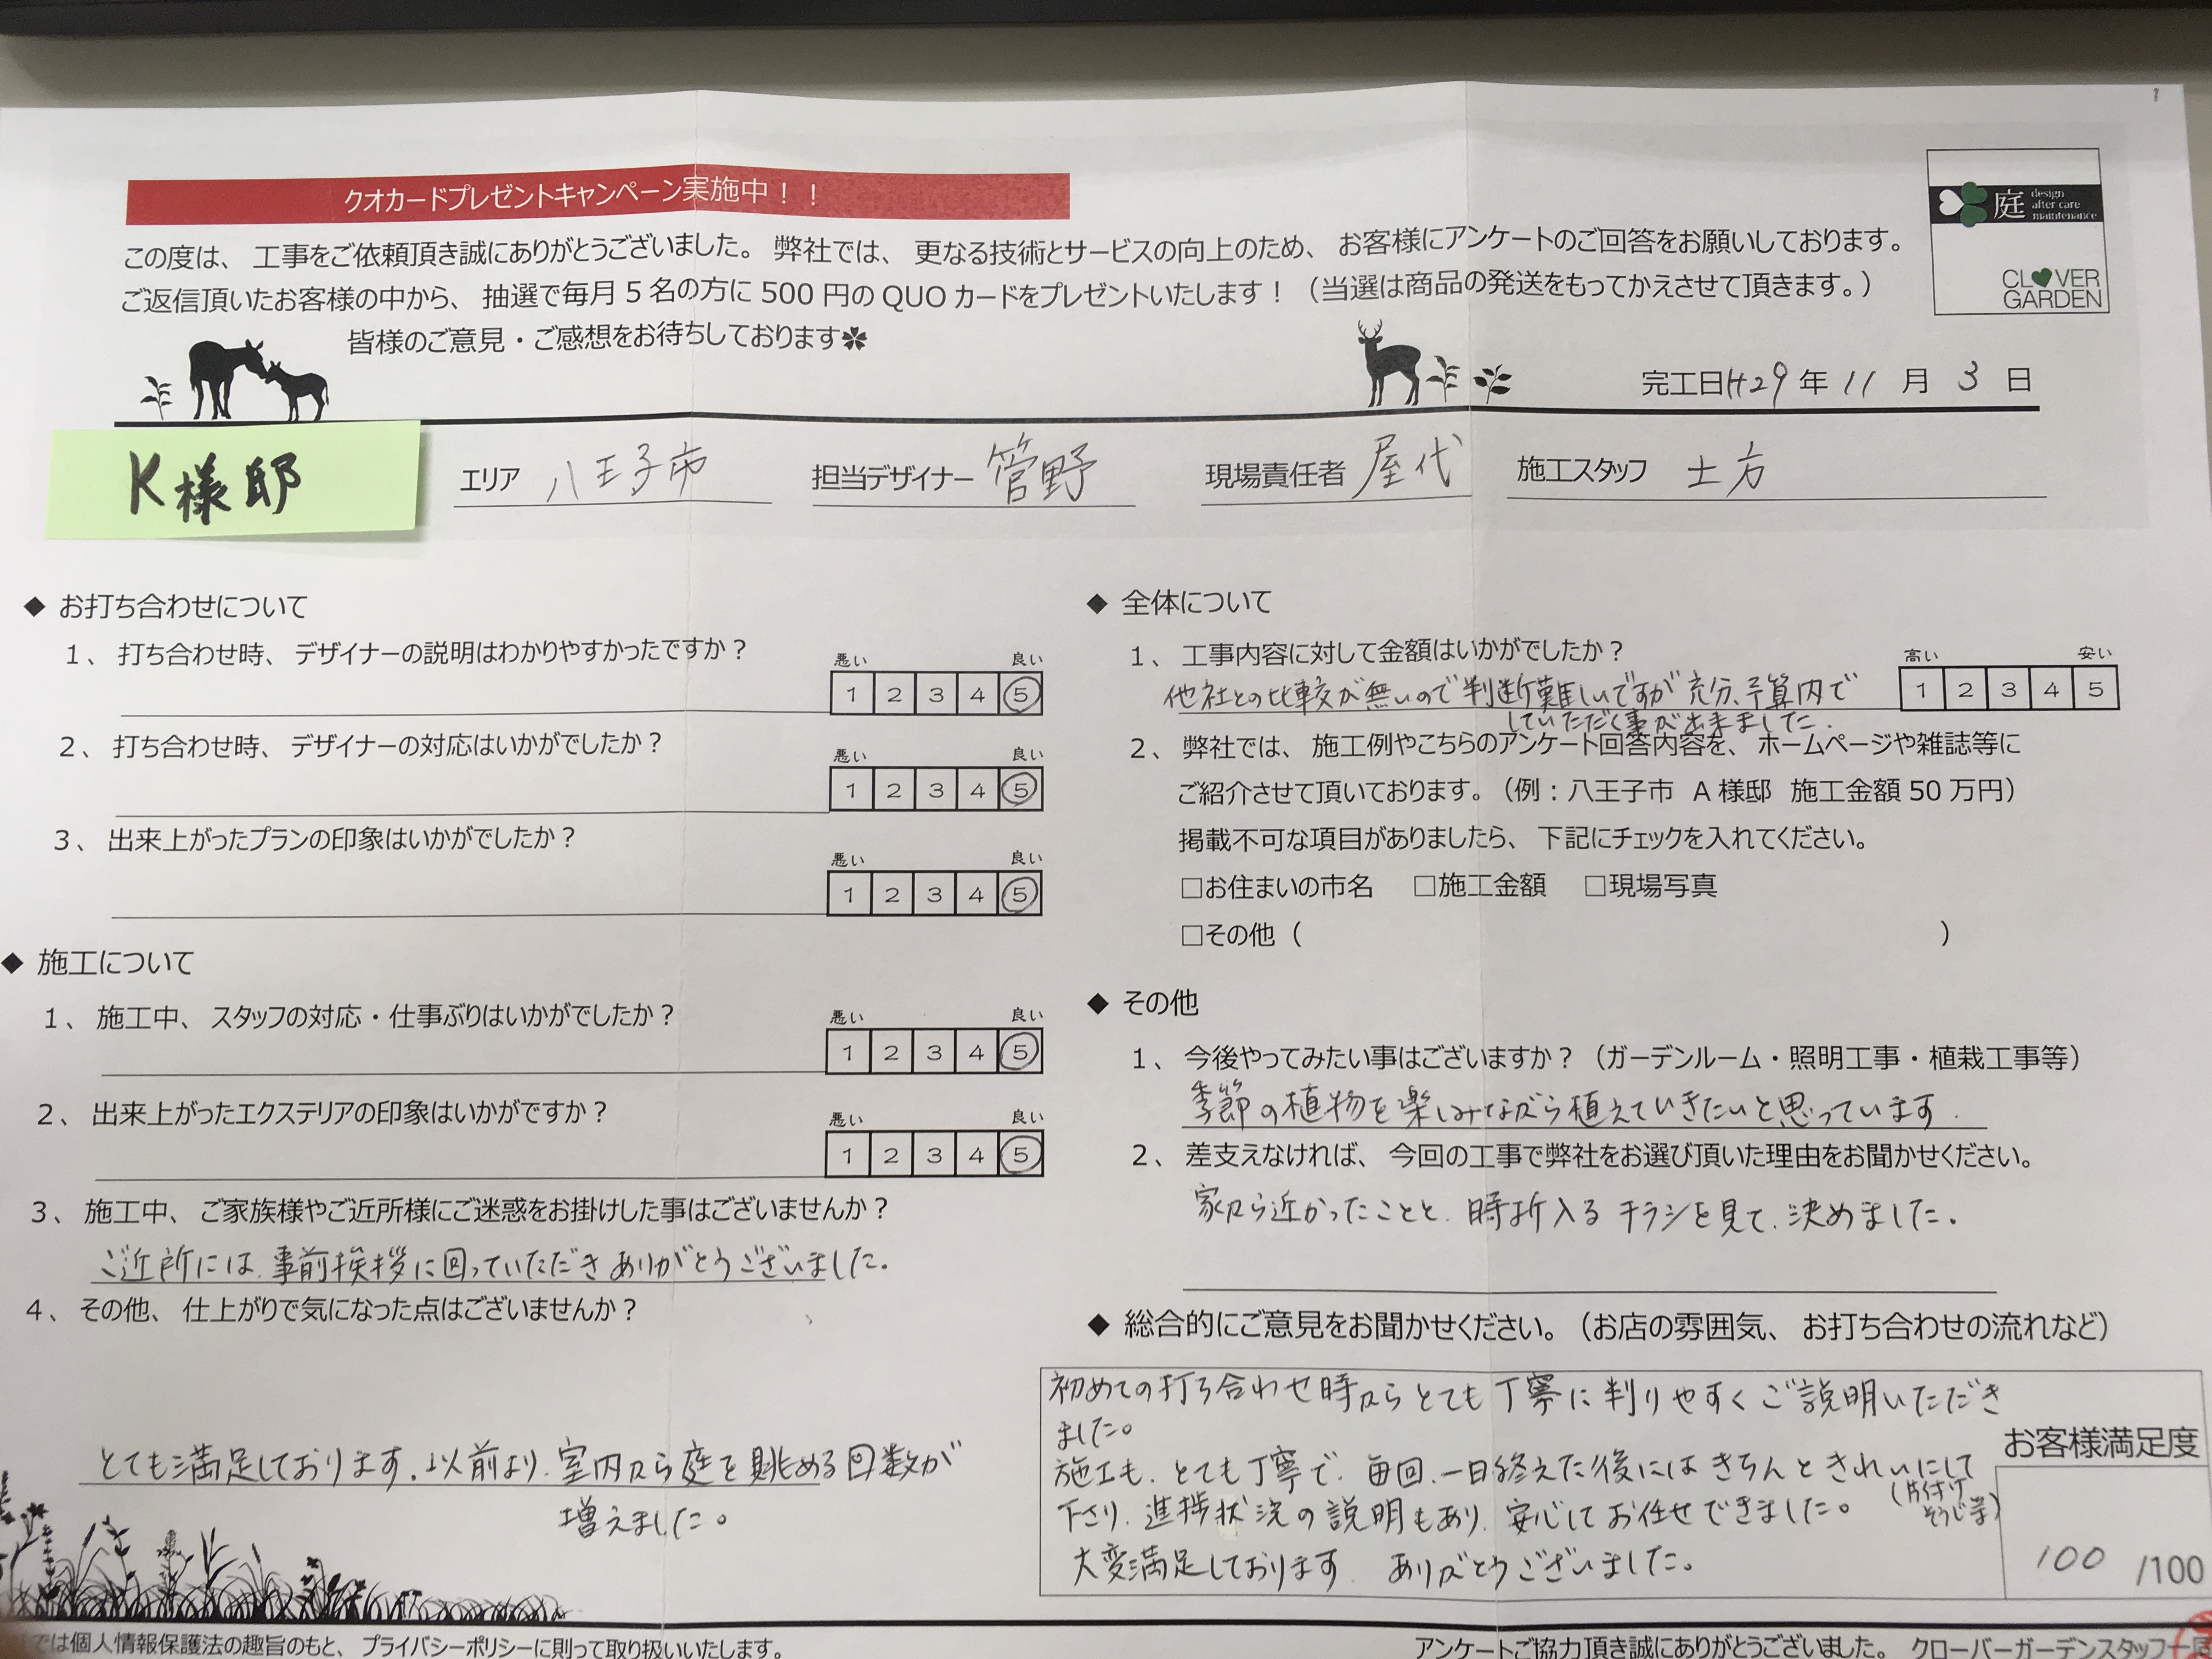 クオカードプレゼントキャンペーン実施中！！
庭 design after care maintenance
CLOVER GARDEN
この度は、工事をご依頼頂き誠にありがとうございました。弊社では、更なる技術とサービスの向上のため、お客様にアンケートのご回答をお願いしております。
ご返信頂いたお客様の中から、抽選で毎月5名の方に500円のQUOカードをプレゼントいたします！（当選は商品の発送をもってかえさせて頂きます。）
皆様のご意見・ご感想をお待ちしております✽
完工日H29年11月3日
K様邸 エリア 八王子市 担当デザイナー 管野 現場責任者 屋代 施工スタッフ 土方
◆ お打ち合わせについて
1、打ち合わせ時、デザイナーの説明はわかりやすかったですか？
悪い 良い
1 2 3 4 5
2、打ち合わせ時、デザイナーの対応はいかがでしたか？
悪い 良い
1 2 3 4 5
3、出来上がったプランの印象はいかがでしたか？
悪い 良い
1 2 3 4 5
◆ 施工について
1、施工中、スタッフの対応・仕事ぶりはいかがでしたか？
悪い 良い
1 2 3 4 5
2、出来上がったエクステリアの印象はいかがですか？
悪い 良い
1 2 3 4 5
3、施工中、ご家族様やご近所様にご迷惑をお掛けした事はございませんか？
ご近所には、事前挨拶に回っていただきありがとうございました。
4、その他、仕上がりで気になった点はございませんか？
とても満足しております。以前より、室内から庭を眺める回数が
増えました。
◆ 全体について
1、工事内容に対して金額はいかがでしたか？
高い 安い
1 2 3 4 5
他社との比較が無いので判断難しいですが充分、予算内で
していただく事が出来ました。
2、弊社では、施工例やこちらのアンケート回答内容を、ホームページや雑誌等に
ご紹介させて頂いております。（例：八王子市 A様邸 施工金額50万円）
掲載不可な項目がありましたら、下記にチェックを入れてください。
□お住まいの市名 □施工金額 □現場写真
□その他（ ）
◆ その他
1、今後やってみたい事はございますか？（ガーデンルーム・照明工事・植栽工事等）
季節の植物を楽しみながら植えていきたいと思っています。
2、差支えなければ、今回の工事で弊社をお選び頂いた理由をお聞かせください。
家から近かったことと、時折入るチラシを見て、決めました。
◆ 総合的にご意見をお聞かせください。（お店の雰囲気、お打ち合わせの流れなど）
初めての打ち合わせ時からとても丁寧に判りやすくご説明いただき
ました。
施工も、とても丁寧で、毎回、一日終えた後にはきちんときれいにして
（片付け そうじ等）
下さり、進捗状況の説明もあり、安心してお任せできました。
大変満足しております。ありがとうございました。
お客様満足度
100 /100
では個人情報保護法の趣旨のもと、プライバシーポリシーに則って取り扱いいたします。
アンケートご協力頂き誠にありがとうございました。クローバーガーデンスタッフ一同